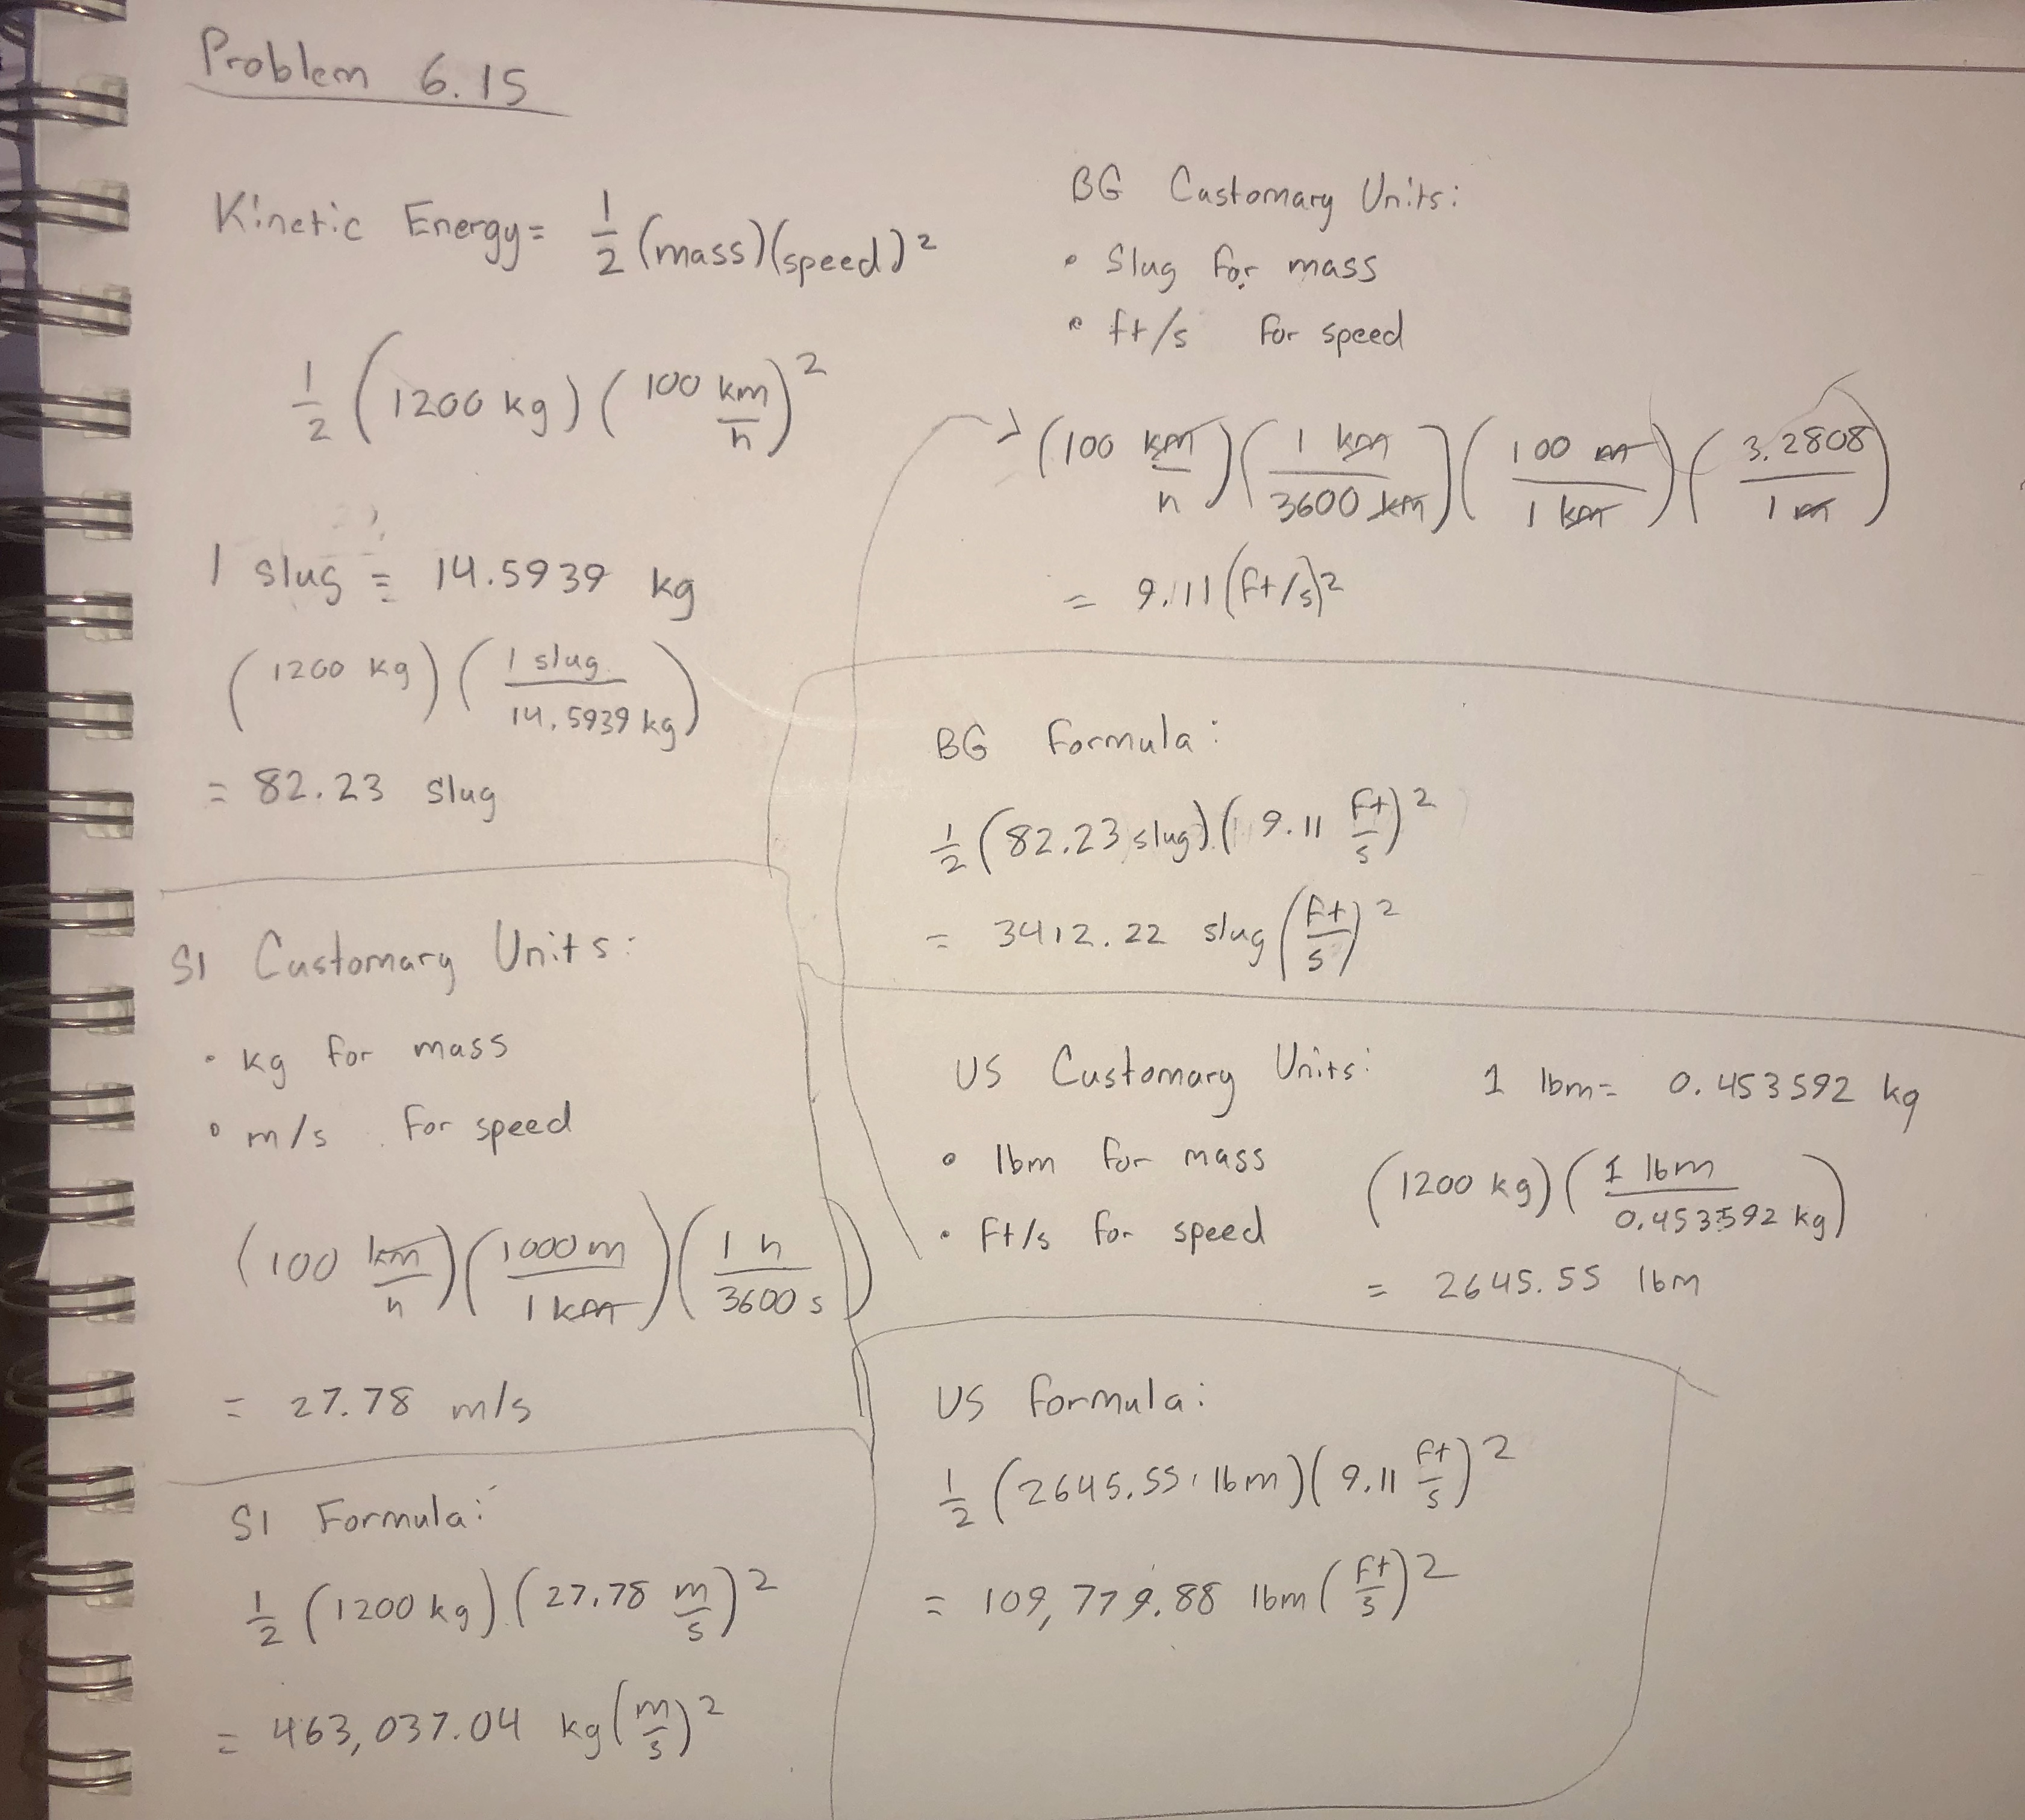 Problem 6.15
Kinetic Energy = 1/2 (mass)(speed)²
1/2 (1200 kg) (100 km/h)²
1 slug = 14.5939 kg
(1200 kg) (1 slug / 14.5939 kg)
= 82.23 slug
SI Customary Units:
• kg for mass
• m/s for speed
(100 km/h) (1000 m / 1 km) (1 h / 3600 s)
= 27.78 m/s
SI Formula:
1/2 (1200 kg) (27.78 m/s)²
= 463,037.04 kg (m/s)²
BG Customary Units:
• Slug for mass
• ft/s for speed
→ (100 km/h) (1 km / 3600 km) (100 m / 1 km) (3.2808 / 1 m)
= 9.11 (ft/s)²
BG Formula:
1/2 (82.23 slug) (9.11 ft/s)²
= 3412.22 slug (ft/s)²
US Customary Units: 1 lbm = 0.453592 kg
• lbm for mass
• ft/s for speed
(1200 kg) (1 lbm / 0.453592 kg)
= 2645.55 lbm
US Formula:
1/2 (2645.55 lbm) (9.11 ft/s)²
= 109,779.88 lbm (ft/s)²